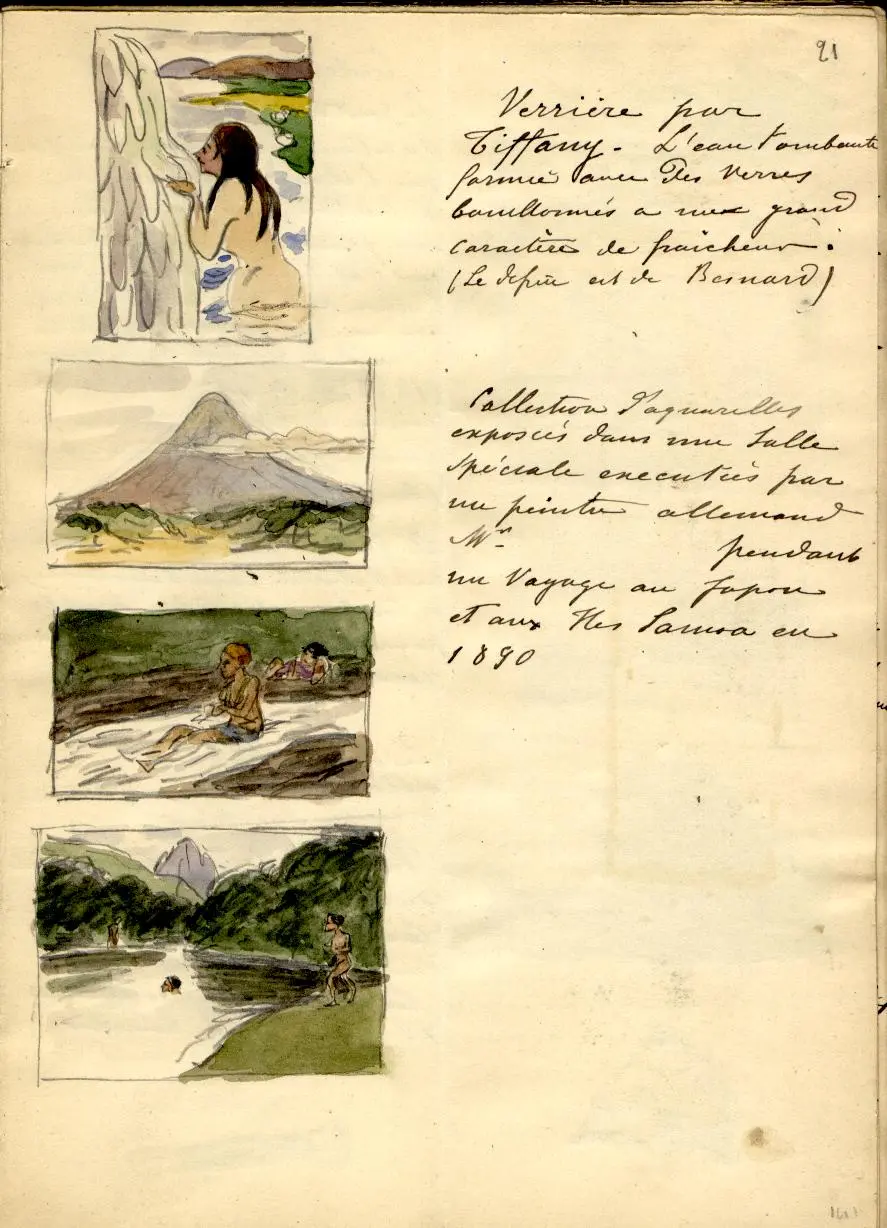 21
Verrière par
Tiffany. L'eau tombante
formée avec des verres
bouillonnés a un grand
caractère de fraicheur.
(Le dessin est de Besnard)
Collection d'aquarelles
exposées dans une Salle
Spéciale executées par
un peintre allemand
Mr pendant
un Voyage au Japon
et aux Iles Samoa en
1890